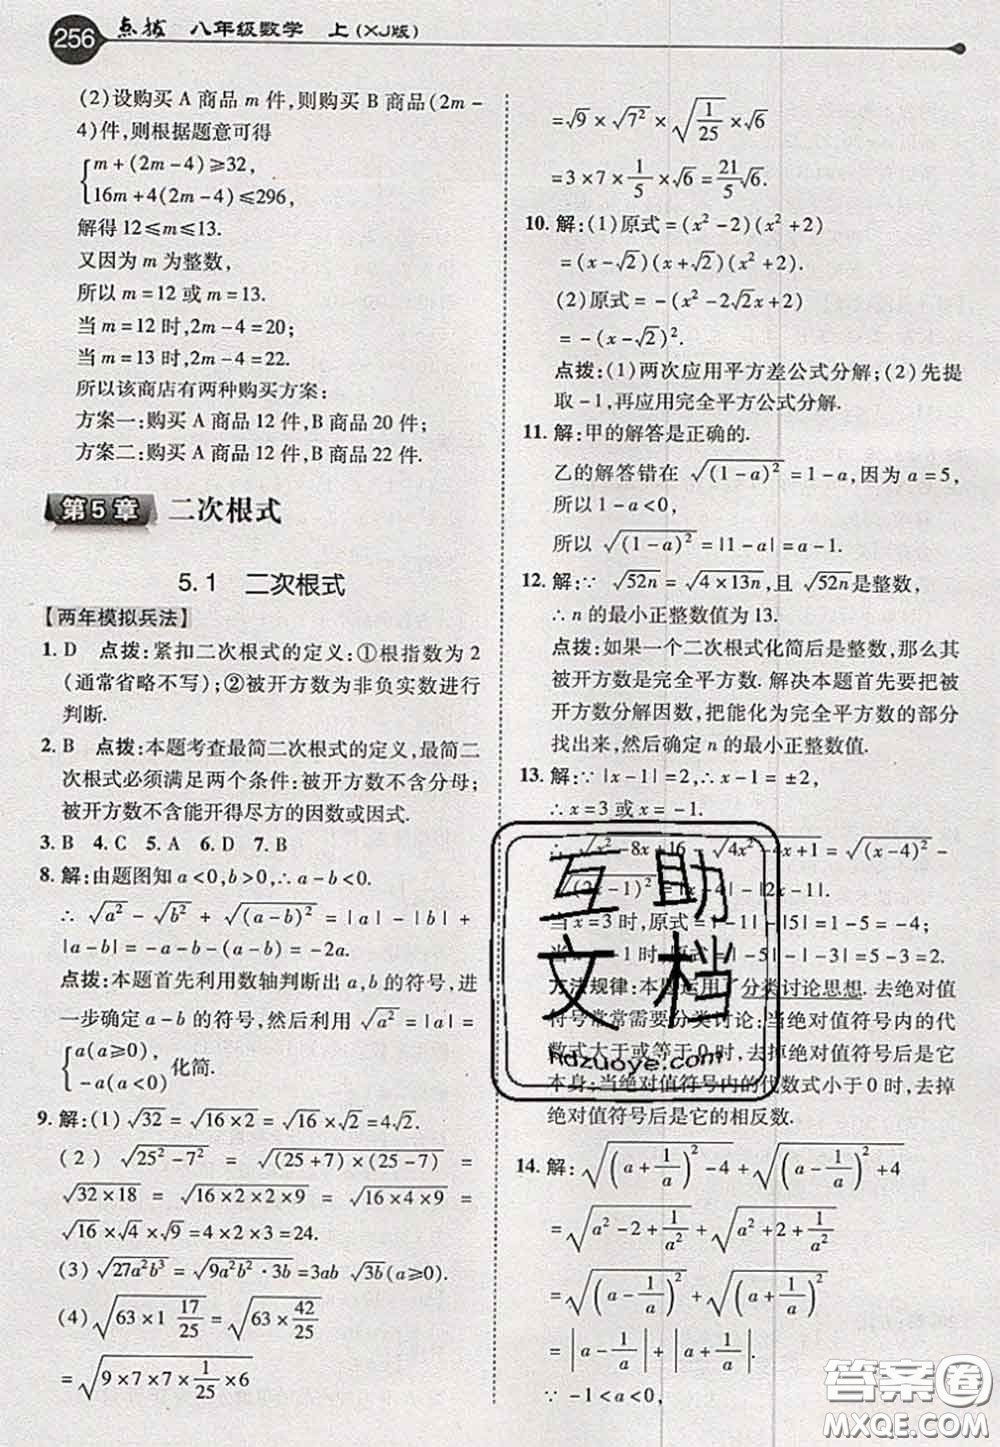 256 点拨 八年级数学 上(XJ版)
(2)设购买 A 商品 m 件,则购买 B 商品(2m-
4)件,则根据题意可得
{m+(2m-4)≥32,
16m+4(2m-4)≤296,
解得 12≤m≤13.
又因为 m 为整数,
所以 m=12 或 m=13.
当 m=12 时,2m-4=20;
当 m=13 时,2m-4=22.
所以该商店有两种购买方案:
方案一:购买 A 商品 12 件,B 商品 20 件;
方案二:购买 A 商品 12 件,B 商品 22 件.
第5章 二次根式
5.1 二次根式
【两年模拟兵法】
1. D 点拨:紧扣二次根式的定义:①根指数为 2
(通常省略不写);②被开方数为非负实数进行
判断.
2. B 点拨:本题考查最简二次根式的定义,最简二
次根式必须满足两个条件:被开方数不含分母;
被开方数不含能开得尽方的因数或因式.
3. B 4. C 5. A 6. D 7. B
8. 解:由题图知 a<0,b>0,∴a-b<0.
∴ √a² - √b² + √(a-b)² = |a| - |b| +
|a-b| = -a-b-(a-b) = -2a.
点拨:本题首先利用数轴判断出 a,b 的符号,进
一步确定 a-b 的符号,然后利用 √a² = |a| =
{a(a≥0),
-a(a<0) 化简.
9. 解:(1) √32 = √(16×2) = √16×√2 = 4√2.
(2) √(25²-7²) = √((25+7)×(25-7)) =
√(32×18) = √(16×2×2×9) = √(16×4×9) =
√16×√4×√9 = 4×2×3=24.
(3) √(27a²b³) = √(9a²b²·3b) = 3ab √3b(a≥0).
(4) √(63×1 17/25) = √(63×42/25)
= √(9×7×7×1/25×6)
= √9 × √7² × √(1/25) × √6
= 3×7×1/5×√6 = 21/5 √6.
10. 解:(1)原式=(x²-2)(x²+2)
=(x-√2)(x+√2)(x²+2).
(2)原式=-(x²-2√2x+2)
=-(x-√2)².
点拨:(1)两次应用平方差公式分解;(2)先提
取-1,再应用完全平方公式分解.
11. 解:甲的解答是正确的.
乙的解答错在 √(1-a)² = 1-a,因为 a=5,
所以 1-a<0,
所以 √(1-a)² = |1-a| = a-1.
12. 解:∵ √52n = √(4×13n),且 √52n是整数,
∴ n 的最小正整数值为 13.
点拨:如果一个二次根式化简后是整数,则其
被开方数是完全平方数. 解决本题首先要把被
开方数分解因数,把能化为完全平方数的部分
找出来,然后确定 n 的最小正整数值.
13. 解:∵ |x-1|=2,∴ x-1=±2,
∴ x=3 或 x=-1.
∴ √(x²-8x+16) - √(4x²-4x+1) = √(x-4)² -
√(2x-1)² = |x-4| - |2x-1|.
当 x=3 时,原式=|-1|-|5|=1-5=-4;
当 x=-1 时,原式=|-5|-|-3|=5-3=2.
方法规律:本题运用了分类讨论思想. 去绝对值
符号常常需要分类讨论:当绝对值符号内的代
数式大于或等于 0 时,去掉绝对值符号后是它
本身;当绝对值符号内的代数式小于 0 时,去掉
绝对值符号后是它的相反数.
14. 解: √((a+1/a)²-4) + √((a-1/a)²+4)
= √(a²-2+1/a²) + √(a²+2+1/a²)
= √(a-1/a)² + √(a+1/a)²
= |a-1/a| + |a+1/a|.
∵ -1<a<0,
互助
文档
hdzuoye.com
答案圈
MXQE.COM